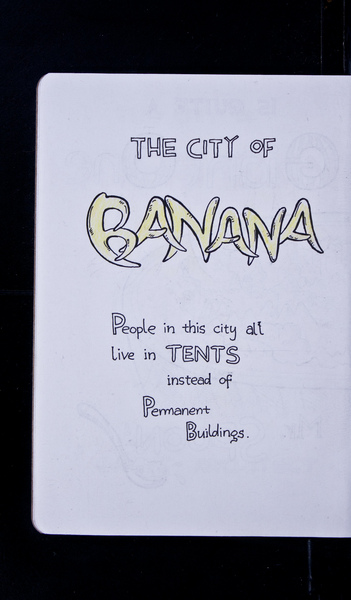 THE CITY OF
BANANA
People in this city all
live in TENTS
instead of
Permanent
Buildings.